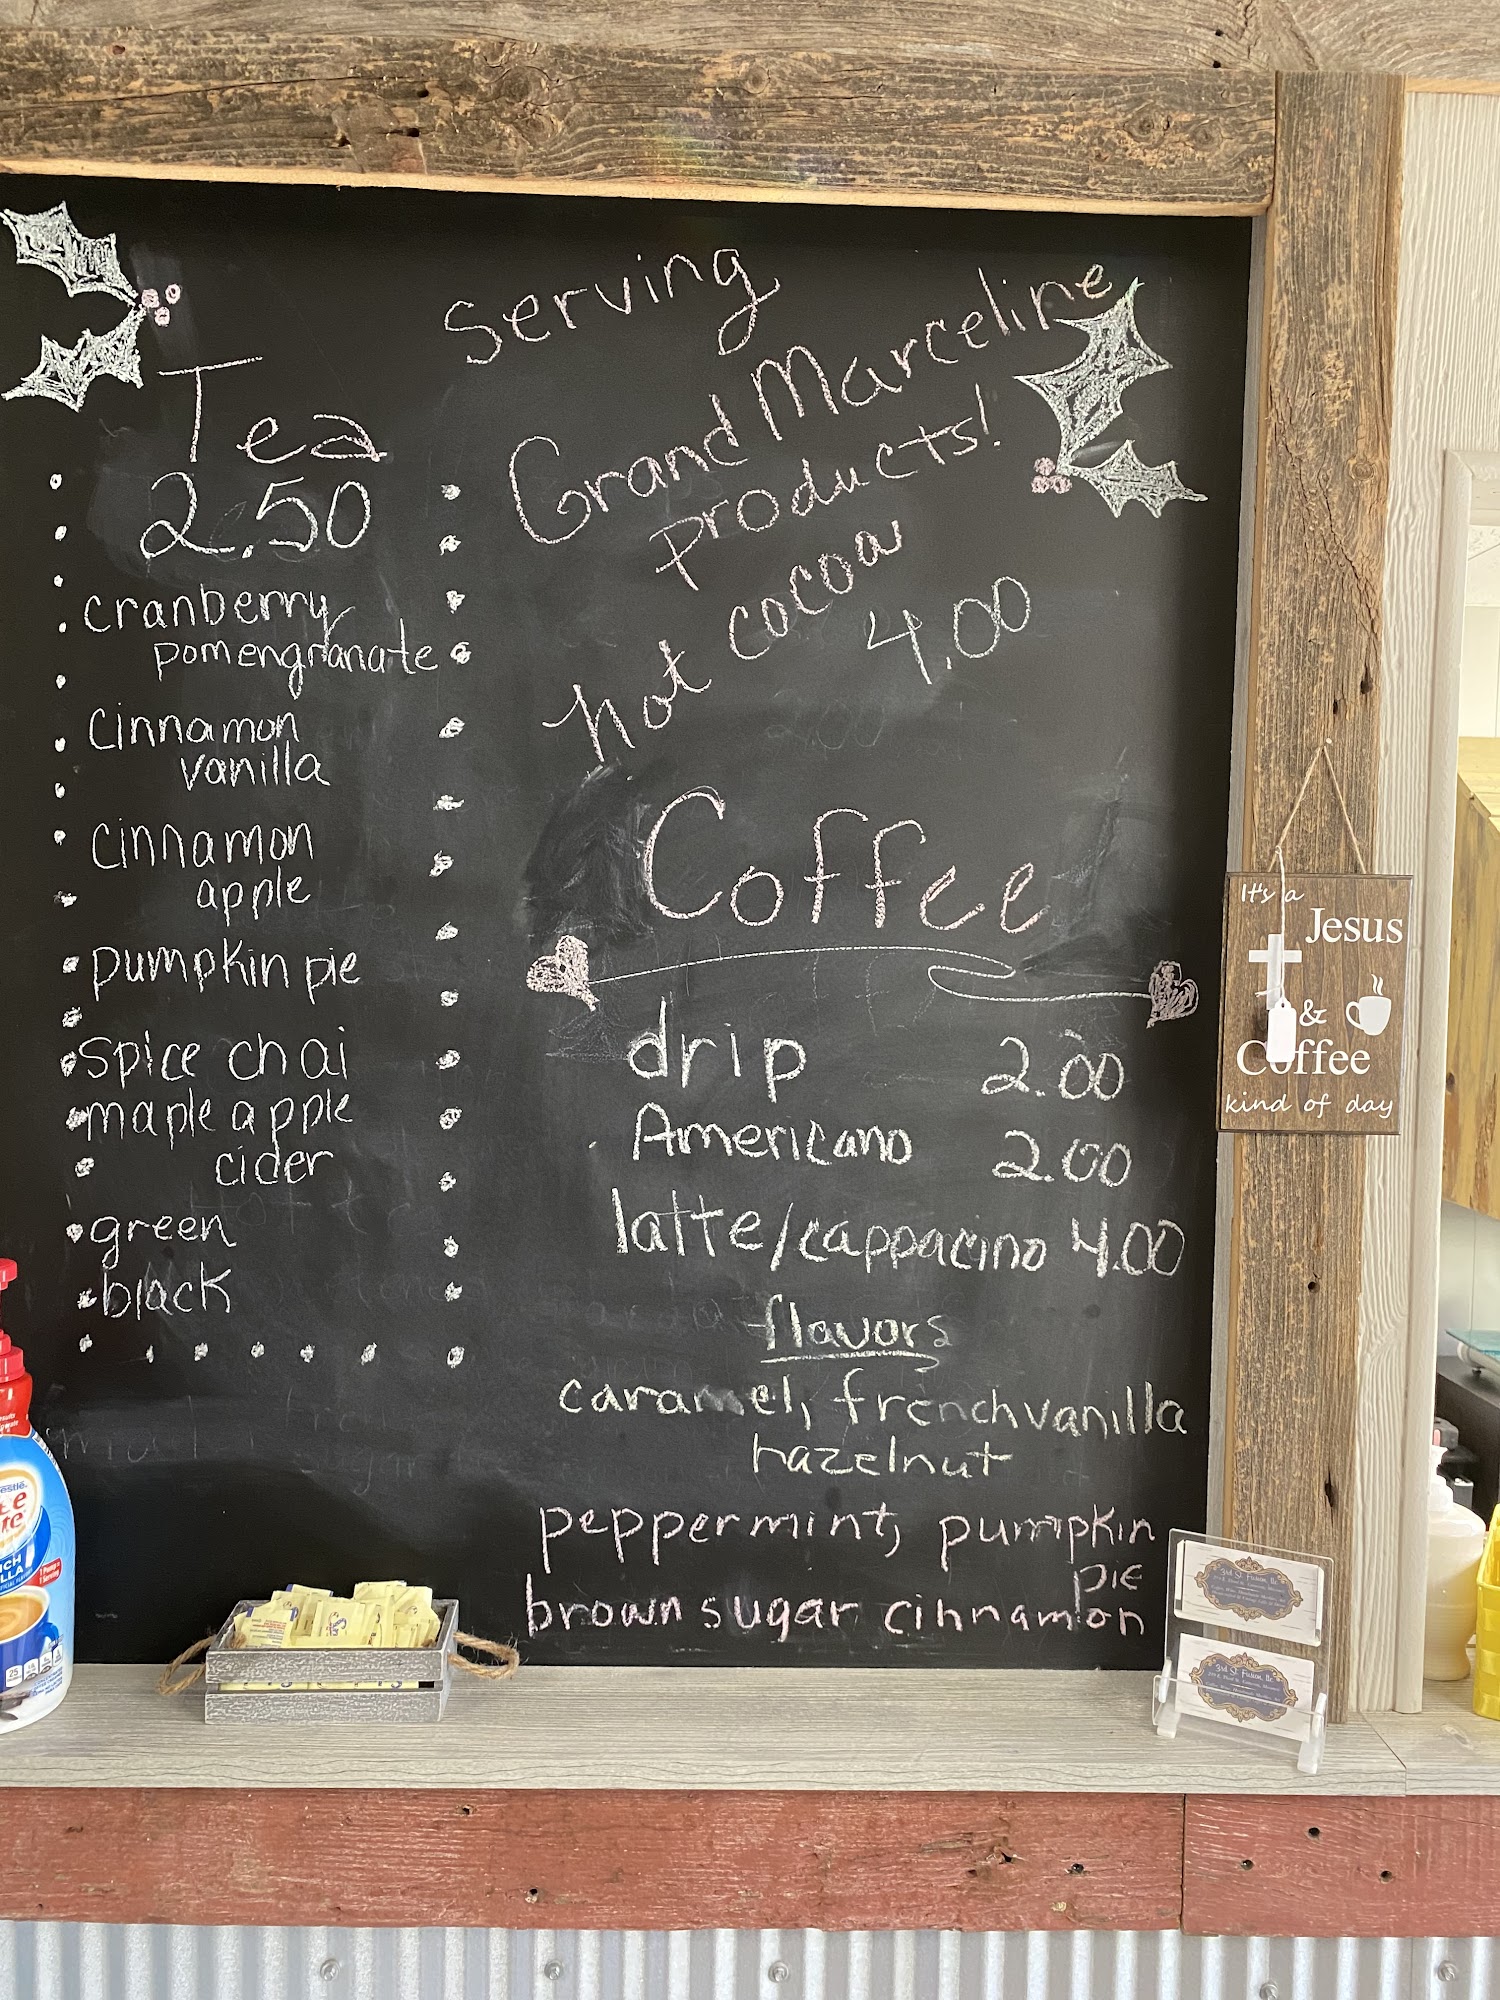 Tea
2.50
cranberry
pomengranate
cinnamon
vanilla
cinnamon
apple
pumpkin pie
spice chai
maple apple
cider
green
black
Serving
Grand Marceline
products!
hot cocoa
4.00
Coffee
drip 2.00
Americano 2.00
latte/cappacino 4.00
flavors
caramel, french vanilla
hazelnut
peppermint, pumpkin
pie
brown sugar cinnamon
It's a
Jesus
&
Coffee
kind of day
3rd St. Fusion, llc
3rd St. Fusion, llc